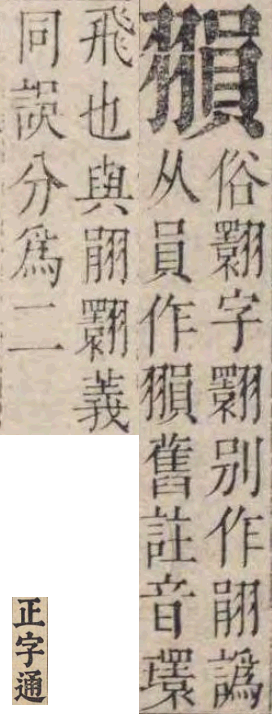 俗翾字翾別作䎀譌
从員作舊註音環
飛也與䎀翾義
同誤分爲二
正字通